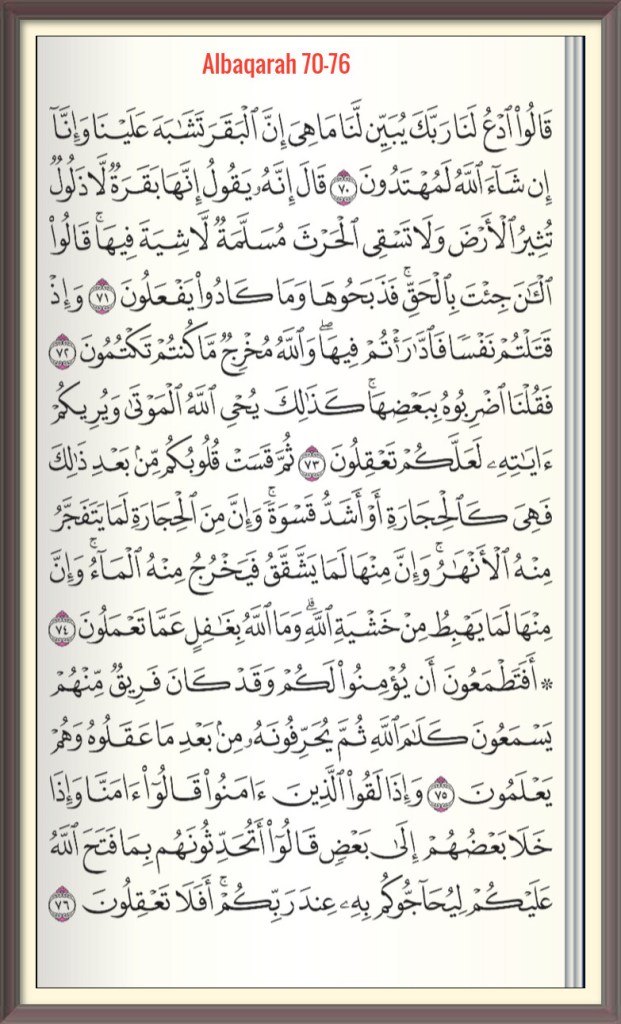 Albaqarah 70-76
قَالُوا۟ ٱدْعُ لَنَا رَبَّكَ يُبَيِّن لَّنَا مَا هِىَ إِنَّ ٱلْبَقَرَ تَشَـٰبَهَ عَلَيْنَا وَإِنَّآ
إِن شَآءَ ٱللَّهُ لَمُهْتَدُونَ ٧٠ قَالَ إِنَّهُۥ يَقُولُ إِنَّهَا بَقَرَةٌ لَّا ذَلُولٌ
تُثِيرُ ٱلْأَرْضَ وَلَا تَسْقِى ٱلْحَرْثَ مُسَلَّمَةٌ لَّا شِيَةَ فِيهَا ۚ قَالُوا۟
ٱلْـَٔـٰنَ جِئْتَ بِٱلْحَقِّ ۚ فَذَبَحُوهَا وَمَا كَادُوا۟ يَفْعَلُونَ ٧١ وَإِذْ
قَتَلْتُمْ نَفْسًا فَٱدَّٰرَْٰٔتُمْ فِيهَا ۖ وَٱللَّهُ مُخْرِجٌ مَّا كُنتُمْ تَكْتُمُونَ ٧٢
فَقُلْنَا ٱضْرِبُوهُ بِبَعْضِهَا ۚ كَذَٰلِكَ يُحْىِ ٱللَّهُ ٱلْمَوْتَىٰ وَيُرِيكُمْ
ءَايَـٰتِهِۦ لَعَلَّكُمْ تَعْقِلُونَ ٧٣ ثُمَّ قَسَتْ قُلُوبُكُم مِّنۢ بَعْدِ ذَٰلِكَ
فَهِىَ كَٱلْحِجَارَةِ أَوْ أَشَدُّ قَسْوَةً ۚ وَإِنَّ مِنَ ٱلْحِجَارَةِ لَمَا يَتَفَجَّرُ
مِنْهُ ٱلْأَنْهَـٰرُ ۚ وَإِنَّ مِنْهَا لَمَا يَشَّقَّقُ فَيَخْرُجُ مِنْهُ ٱلْمَآءُ ۚ وَإِنَّ
مِنْهَا لَمَا يَهْبِطُ مِنْ خَشْيَةِ ٱللَّهِ ۗ وَمَا ٱللَّهُ بِغَـٰفِلٍ عَمَّا تَعْمَلُونَ ٧٤
* أَفَتَطْمَعُونَ أَن يُؤْمِنُوا۟ لَكُمْ وَقَدْ كَانَ فَرِيقٌ مِّنْهُمْ
يَسْمَعُونَ كَلَـٰمَ ٱللَّهِ ثُمَّ يُحَرِّفُونَهُۥ مِنۢ بَعْدِ مَا عَقَلُوهُ وَهُمْ
يَعْلَمُونَ ٧٥ وَإِذَا لَقُوا۟ ٱلَّذِينَ ءَامَنُوا۟ قَالُوٓا۟ ءَامَنَّا وَإِذَا
خَلَا بَعْضُهُمْ إِلَىٰ بَعْضٍ قَالُوٓا۟ أَتُحَدِّثُونَهُم بِمَا فَتَحَ ٱللَّهُ
عَلَيْكُمْ لِيُحَآجُّوكُم بِهِۦ عِندَ رَبِّكُمْ ۚ أَفَلَا تَعْقِلُونَ ٧٦